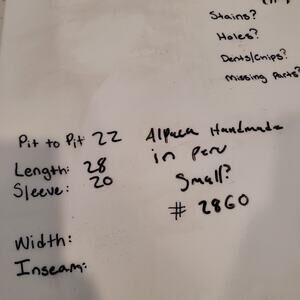 Stains?
Holes?
Dents/Chips?
Missing Parts?
Pit to Pit 22
Length: 28
Sleeve: 20
Alpaca Handmade
in Peru
Small?
# 2860
Width:
Inseam: